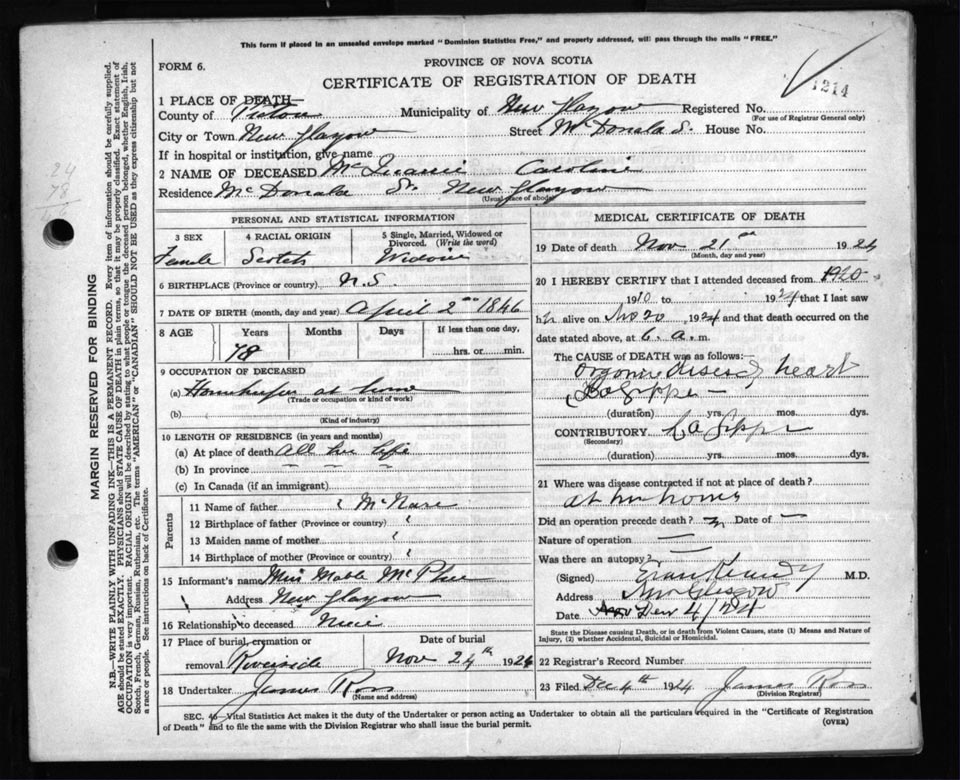 This form if placed in an unsealed envelope marked "Dominion Statistics Free," and properly addressed, will pass through the mails "FREE."
FORM 6.
PROVINCE OF NOVA SCOTIA
CERTIFICATE OF REGISTRATION OF DEATH
1214
1 PLACE OF DEATH—
County of Pictou Municipality of New Glasgow Registered No.
(For use of Registrar General only)
City or Town New Glasgow Street McDonald S. House No.
If in hospital or institution, give name
2 NAME OF DECEASED Caroline
Residence McDonald St. New Glasgow
(Usual place of abode)
PERSONAL AND STATISTICAL INFORMATION
3 SEX 4 RACIAL ORIGIN 5 Single, Married, Widowed or Divorced. (Write the word)
Female Scotch Widow
6 BIRTHPLACE (Province or country) N.S.
7 DATE OF BIRTH (month, day and year) April 2nd 1846
8 AGE Years Months Days If less than one day.
78 hrs. or min.
9 OCCUPATION OF DECEASED
(a) Housekeeper at home
(Trade or occupation or kind of work)
(b)
(Kind of industry)
10 LENGTH OF RESIDENCE (in years and months)
(a) At place of death All her life
(b) In province " " "
(c) In Canada (if an immigrant)
Parents
11 Name of father ? McNair
12 Birthplace of father (Province or country) "
13 Maiden name of mother "
14 Birthplace of mother (Province or country) "
15 Informant's name Miss Mable McPhee
Address New Glasgow
16 Relationship to deceased Niece
17 Place of burial, cremation or removal Date of burial
Riverside Nov 24th 1924
18 Undertaker James Ross
(Name and address)
MEDICAL CERTIFICATE OF DEATH
19 Date of death Nov 21st 1924
(Month, day and year)
20 I HEREBY CERTIFY that I attended deceased from 1920
1910 to 1924 that I last saw
her alive on Nov 20, 1924 and that death occurred on the
date stated above, at 6. a. m.
The CAUSE OF DEATH was as follows:—
Organic disease of heart
La Grippe
(duration) yrs. mos. dys.
CONTRIBUTORY La Grippe
(Secondary)
(duration) yrs. mos. dys.
21 Where was disease contracted if not at place of death?
at her home
Did an operation precede death? Date of —
Nature of operation —
Was there an autopsy?
(Signed) Evan Kennedy M.D.
Address New Glasgow
Date Dec 4/24
State the Disease causing Death, or in death from Violent Causes, state (1) Means and Nature of Injury, (2) whether Accidental, Suicidal or Homicidal.
22 Registrar's Record Number
23 Filed Dec 4th 1924 James Ross
(Division Registrar)
SEC. 46—Vital Statistics Act makes it the duty of the Undertaker or person acting as Undertaker to obtain all the particulars required in the "Certificate of Registration of Death" and to file the same with the Division Registrar who shall issue the burial permit.
(OVER)
MARGIN RESERVED FOR BINDING
N.B.—WRITE PLAINLY WITH UNFADING INK—THIS IS A PERMANENT RECORD. Every item of information should be carefully supplied.
AGE should be stated EXACTLY. PHYSICIANS should STATE CAUSE OF DEATH in plain terms, so that it may be properly classified. Exact statement of
OCCUPATION is very important. RACIAL ORIGIN will be described by stating to what people or tongue the deceased person belonged, whether English, Irish,
Scotch, French, German, Russian, Ruthenian, etc. The terms "AMERICAN" or "CANADIAN" SHOULD NOT BE USED as they express citizenship but not
a race or people. See instructions on back of Certificate.